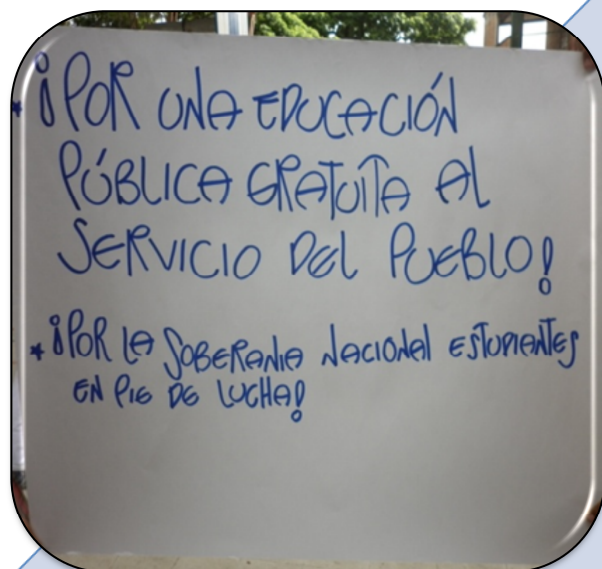 * ¡POR UNA EDUCACIÓN
PÚBLICA GRATUITA AL
SERVICIO DEL PUEBLO!
* ¡POR LA SOBERANIA NACIONAL ESTUDIANTES
EN PIE DE LUCHA!